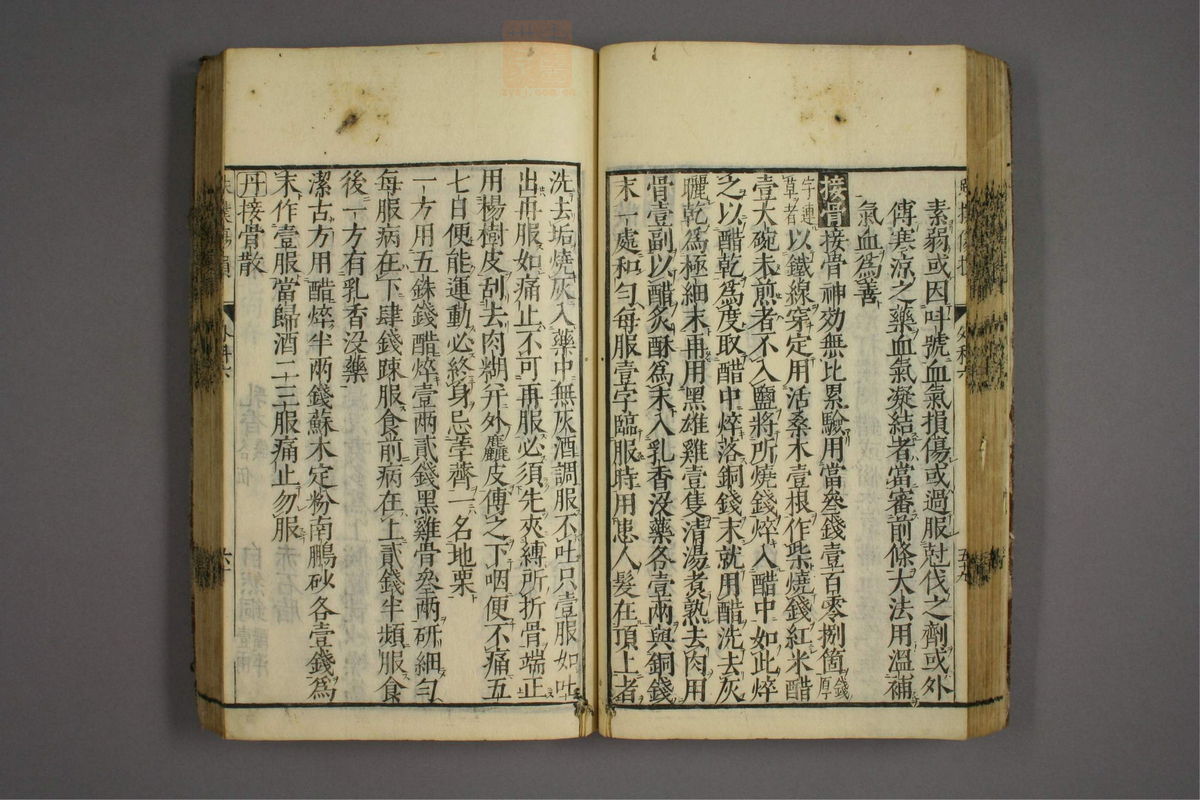 素弱或因叫號血氣損傷或過服尅伐之劑或外
傅寒涼之藥血氣凝結者當審前條大法用溫補
氣血爲善
接骨接骨神効無比累驗用當叄錢壹百零捌箇錢厚
字連草者以鐵線穿定用活桑木壹根作柴燒錢紅米醋
壹大碗未煎者不入鹽將所燒錢焠入醋中如此焠
之以醋乾爲度取醋中焠落銅錢末就用醋洗去灰
曬乾爲極細末再用黑雄雞壹隻清湯煮熟去肉用
骨壹副以醋炙酥爲末入乳香沒藥各壹兩與銅錢
末一處和勻每服壹字臨服時用患人髮在頂上者
洗去垢燒灰入藥中無灰酒調服不吐只壹服如吐
出再服如痛止不可再服必須先夾縛所折骨端正
用楊樹皮刮去肉糊幵外麤皮傅之下咽便不痛五
七日便能運動必終身忌荸薺一名地栗
一方用五銖錢醋焠壹兩貳錢黑雞骨叄兩研細勻
每服病在下肆錢疎服食前病在上貳錢半頻服食
後一方有乳香沒藥
潔古方用醋焠半兩錢蘇木定粉南鵬砂各壹錢爲
末作壹服當歸酒二三服痛止勿服
丹接骨散
六